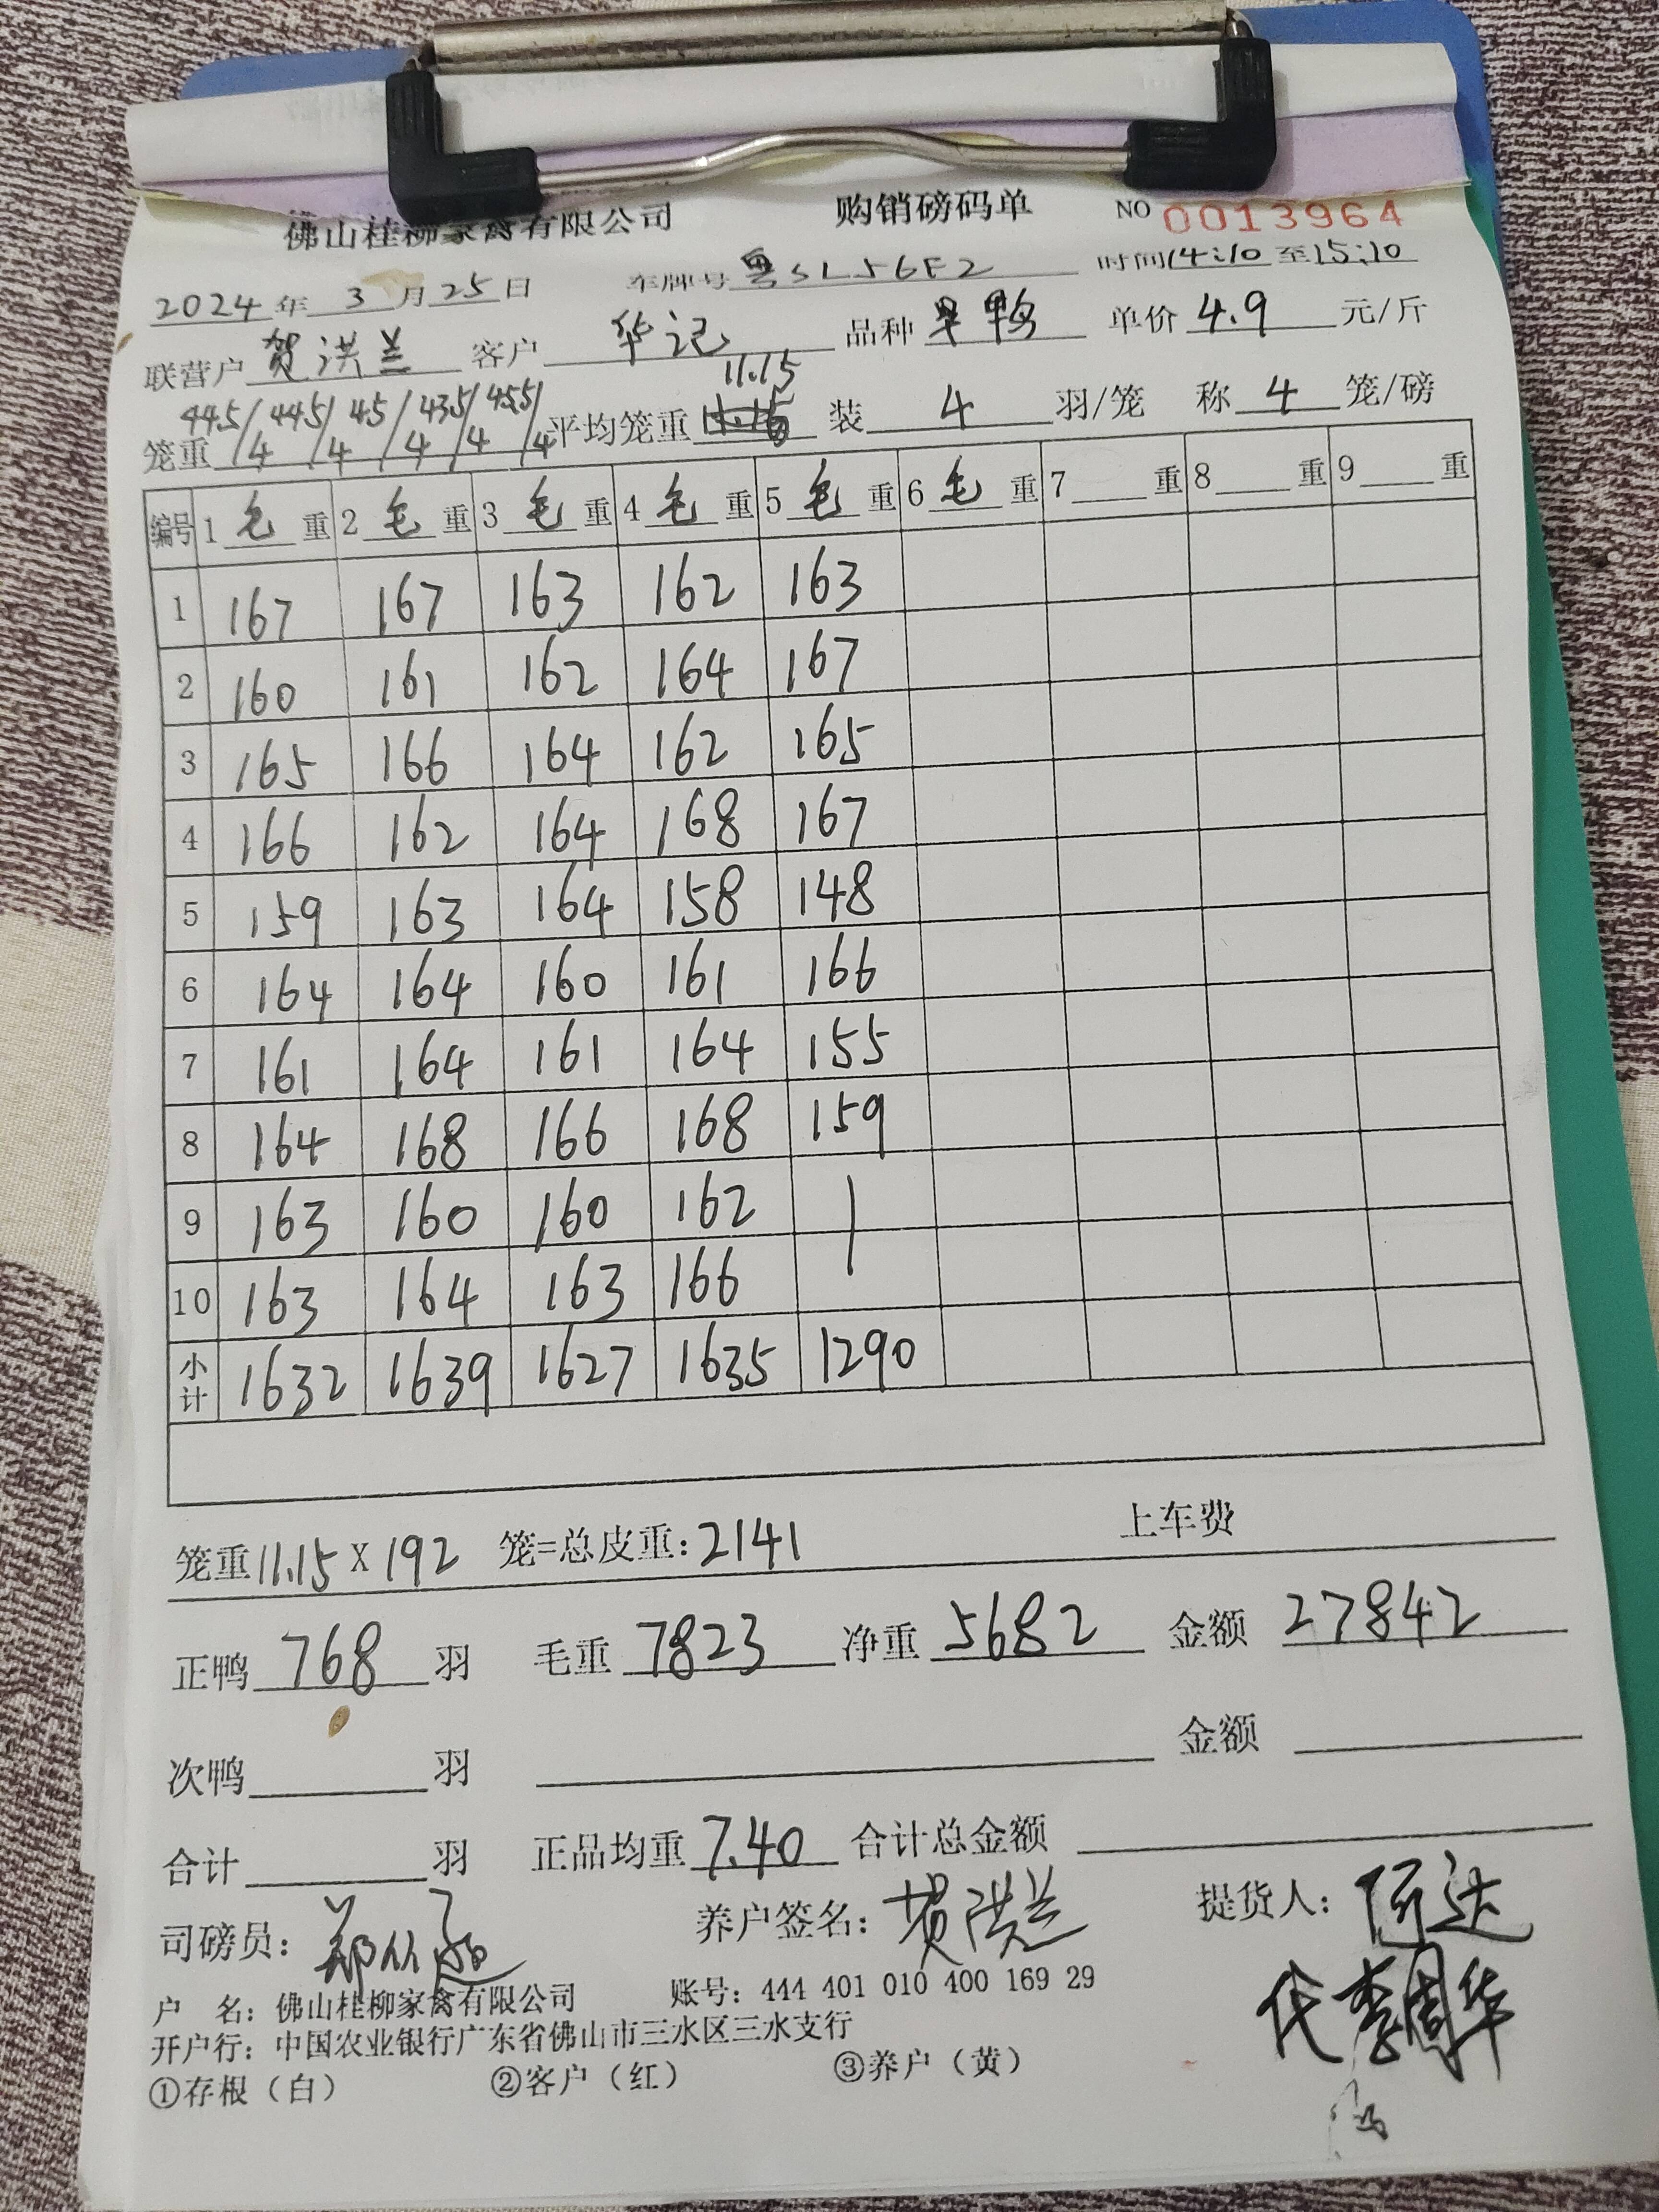 佛山桂柳家禽有限公司 购销磅码单 NO 0013964
2024年3月25日 车牌号粤SL56F2 时间14:10至15:10
联营户贺洪兰 客户华记 品种 单价4.9元/斤
11.15
笼重44.5/4 44.5/4 45/4 43.5/4 45.5/4 平均笼重 装4羽/笼 称4笼/磅
编号 1毛重 2毛重 3毛重 4毛重 5毛重 6毛重 7重 8重 9重
1 167 167 163 162 163
2 160 161 162 164 167
3 165 166 164 162 165
4 166 162 164 168 167
5 159 163 164 158 148
6 164 164 160 161 166
7 161 164 161 164 155
8 164 168 166 168 159
9 163 160 160 162
10 163 164 163 166
小计 1632 1639 1627 1635 1290
笼重11.15X192笼=总皮重:2141 上车费
正鸭768羽 毛重7823 净重5682 金额27842
次鸭 羽 金额
合计 羽 正品均重7.40 合计总金额
司磅员: 养户签名:贺洪兰 提货人:阿达
代李周华
户 名:佛山桂柳家禽有限公司 账号:444 401 010 400 169 29
开户行:中国农业银行广东省佛山市三水区三水支行
①存根(白) ②客户(红) ③养户(黄)